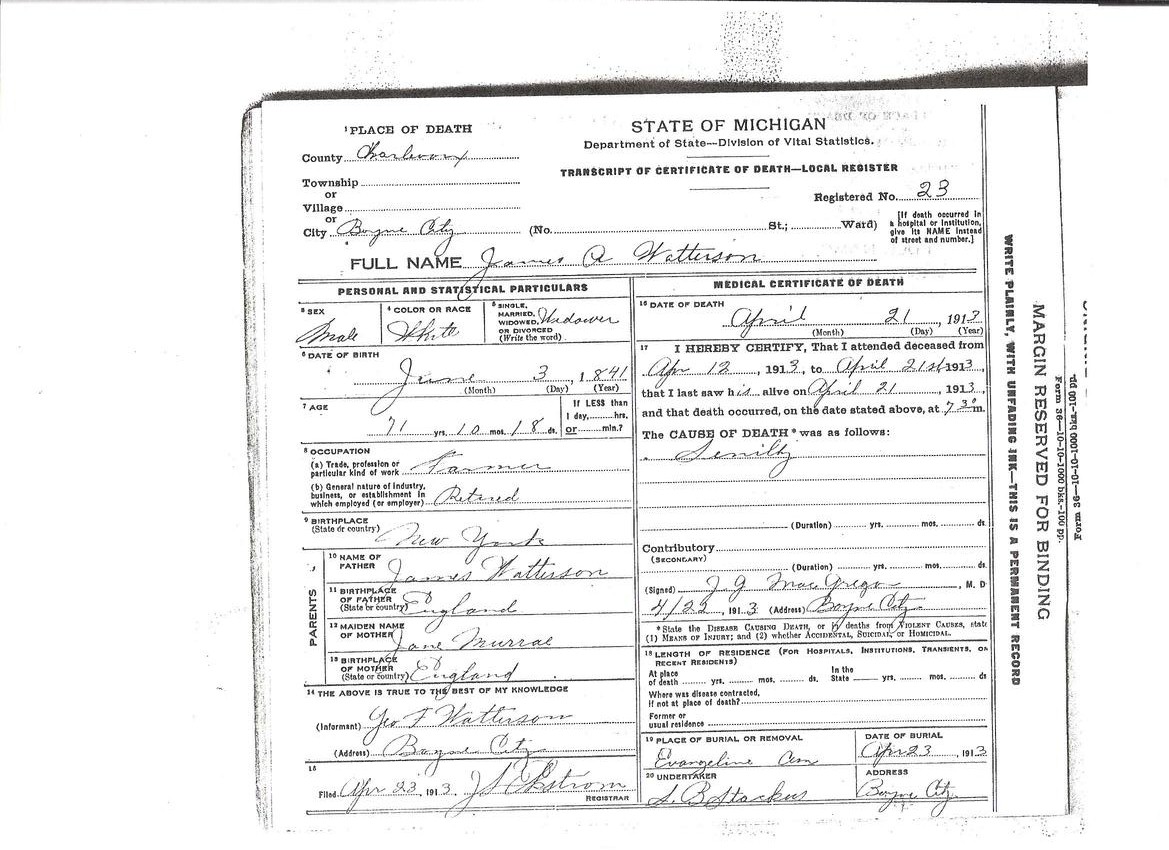 STATE OF MICHIGAN
Department of State—Division of Vital Statistics.
TRANSCRIPT OF CERTIFICATE OF DEATH—LOCAL REGISTER
1 PLACE OF DEATH
County Charlevoix
Township
or
Village
or
City Boyne City (No. St.; Ward)
Registered No. 23
[If death occurred in
a hospital or institution,
give its NAME instead
of street and number.]
FULL NAME James A Watterson
PERSONAL AND STATISTICAL PARTICULARS
3 SEX
Male
4 COLOR OR RACE
White
5 SINGLE,
MARRIED,
WIDOWED,
OR DIVORCED
(Write the word)
Widower
6 DATE OF BIRTH
June 3, 1841
(Month) (Day) (Year)
7 AGE
71 yrs. 10 mos. 18 ds.
If LESS than
1 day, hrs.
or min.?
8 OCCUPATION
(a) Trade, profession or
particular kind of work Farmer
(b) General nature of industry,
business, or establishment in
which employed (or employer) Retired
9 BIRTHPLACE
(State or country) New York
PARENTS
10 NAME OF
FATHER James Watterson
11 BIRTHPLACE
OF FATHER
(State or country) England
12 MAIDEN NAME
OF MOTHER Jane Murrae
13 BIRTHPLACE
OF MOTHER
(State or country) England
14 THE ABOVE IS TRUE TO THE BEST OF MY KNOWLEDGE
(Informant) Geo F Watterson
(Address) Boyne City
15
Filed Apr 23, 1913.
REGISTRAR
MEDICAL CERTIFICATE OF DEATH
16 DATE OF DEATH
April 21, 1913
(Month) (Day) (Year)
17 I HEREBY CERTIFY, That I attended deceased from
Apr 12, 1913, to April 21st 1913,
that I last saw his alive on April 21, 1913,
and that death occurred, on the date stated above, at 7 30 m.
The CAUSE OF DEATH* was as follows:
Senility
(Duration) yrs. mos. ds.
Contributory
(SECONDARY)
(Duration) yrs. mos. ds.
(Signed) J.G. MacGregor, M. D
4/22, 1913 (Address) Boyne City
*State the DISEASE CAUSING DEATH, or in deaths from VIOLENT CAUSES, state
(1) MEANS OF INJURY; and (2) whether ACCIDENTAL, SUICIDAL, or HOMICIDAL.
18 LENGTH OF RESIDENCE (FOR HOSPITALS, INSTITUTIONS, TRANSIENTS, OR
RECENT RESIDENTS)
At place
of death yrs. mos. ds.
In the
State yrs. mos. ds
Where was disease contracted,
if not at place of death?
Former or
usual residence
19 PLACE OF BURIAL OR REMOVAL
Evangeline
DATE OF BURIAL
Apr 23, 1913
20 UNDERTAKER
S. B Stackus
ADDRESS
Boyne City
WRITE PLAINLY, WITH UNFADING INK—THIS IS A PERMANENT RECORD
MARGIN RESERVED FOR BINDING
Form 36—10-10-1000 bks.-100 pp.
Form 36—10-10-1000 bks.-100 pp.